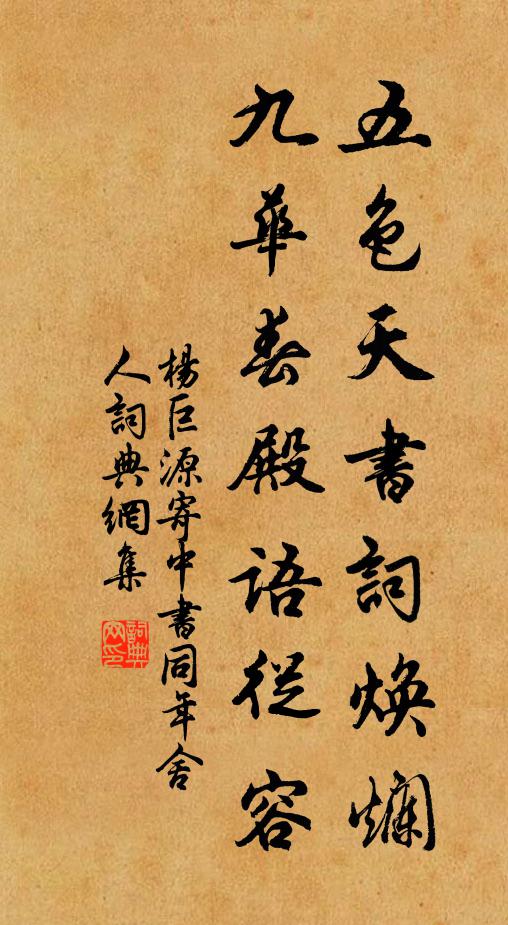 五色天書詞煥爛
九華春殿語從容
楊巨源寄中書同年舍
人詞典網集
詞典
網印